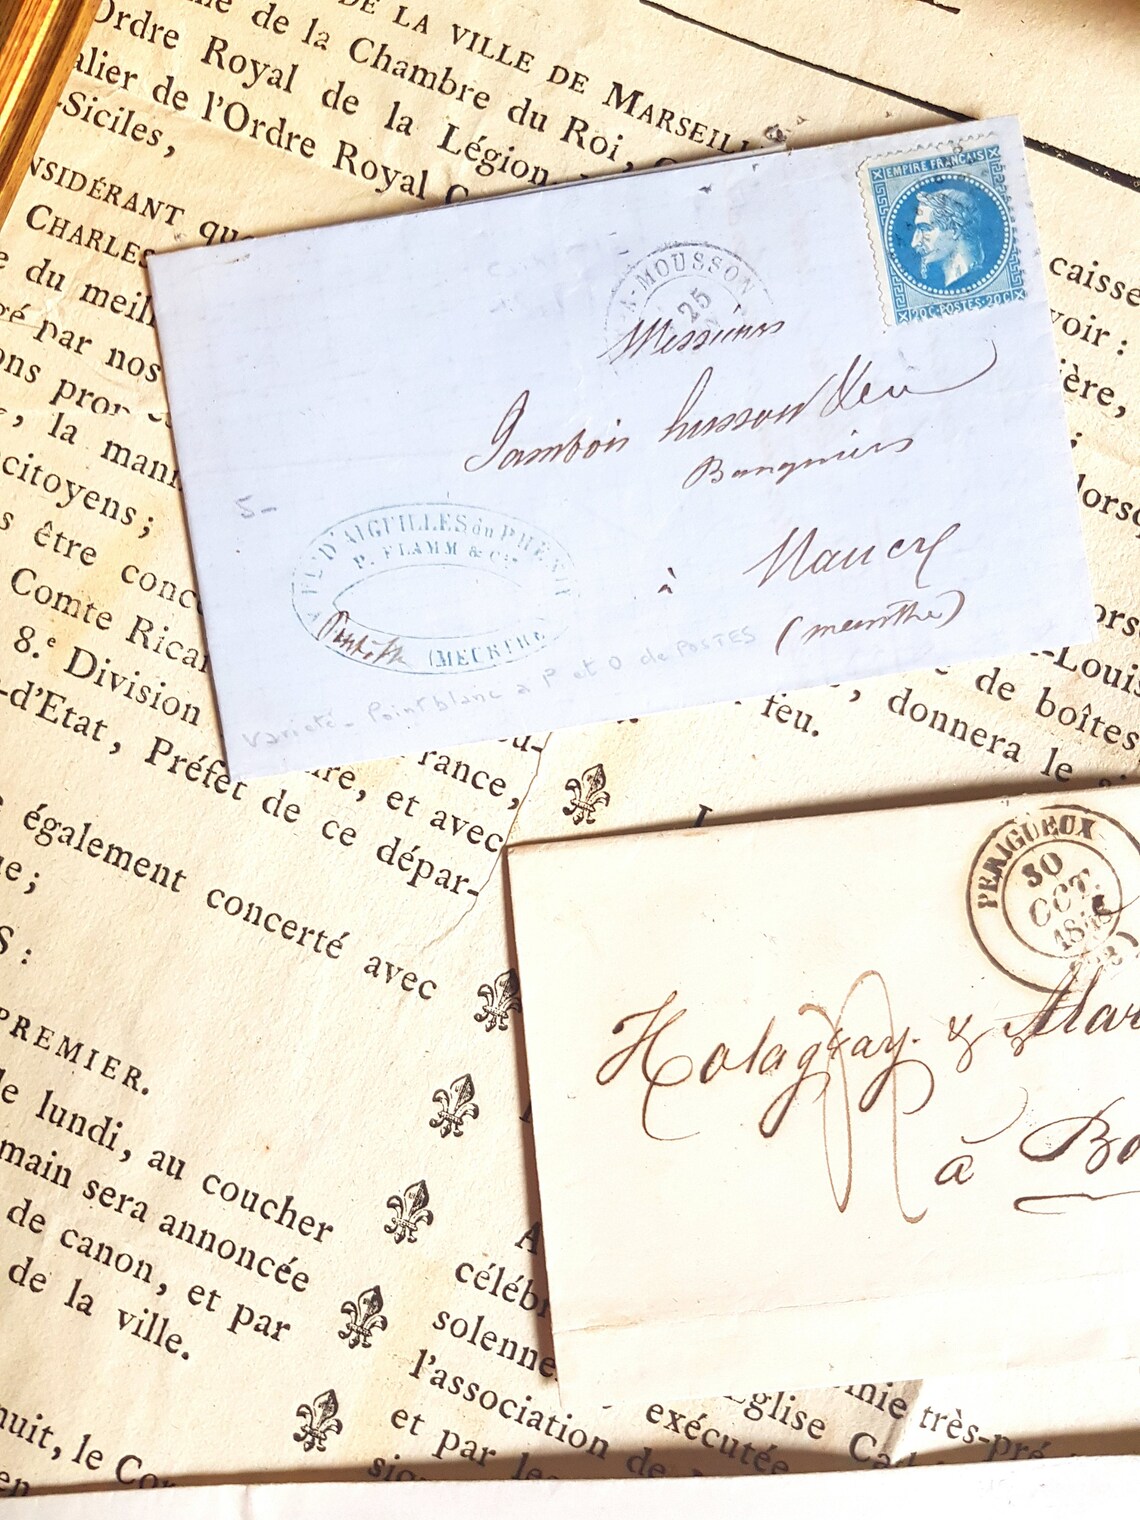 DE LA VILLE DE MARSEILL
de la Chambre du Roi,
Ordre Royal de la Légion
alier de l'Ordre Royal
-Siciles,
NSIDÉRANT que
CHARLES
du meill
gé par nos
ons pro
, la mani
citoyens;
s être conc
Comte Ricar
8.e Division
-d'Etat, Préfet de ce dépar-
rance,
ire, et avec
également concerté avec
ue;
S :
PREMIER.
le lundi, au coucher
main sera annoncée
de canon, et par
de la ville.
nuit, le Co
en
EMPIRE FRANÇAIS
20C·POSTES·20C
A-MOUSSON
25
Messieurs
Jambois husson &
Banquiers
à Nancy
(meurthe)
5-
D'AIGUILLES du PHÉNIX
P. FLAMM & Cie
(MEURTHE)
Variété - Point blanc a P et O de POSTES
caisse
voir :
ère,
;
lorsq
ors
-Louis
de boîtes
, donnera le
feu.
PERIGUEUX
30
OCT.
(23)
Holagray & Mar
à Bo
A
célébr
solenne
l'association de
et par les
Eglise Ca
exécutée
très-pré